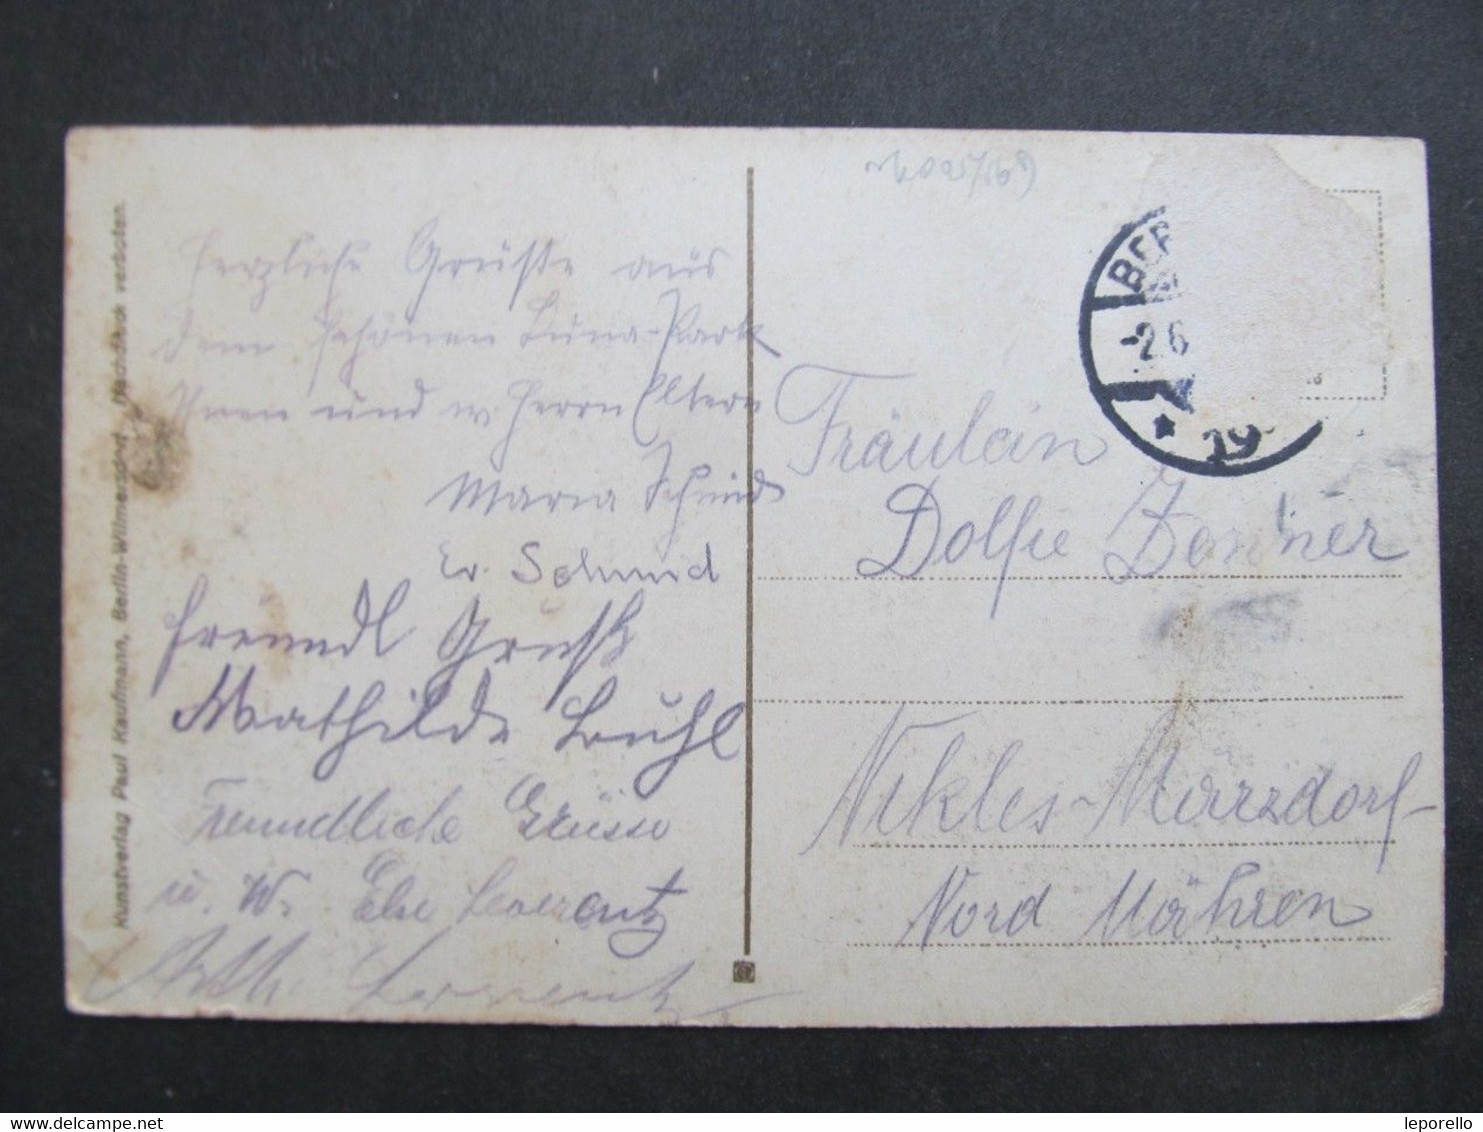 Kunstverlag Paul Kaufmann, Berlin-Wilmersdorf. Nachdruck verboten.
Herzliche Grüße aus
dem schönen Luna-Park
Ihnen und w. Herrn Eltern
Maria Schmid
Schmid
Freundl Gruß
Mathilde
Freundliche Grüsse
u. W. Else Leverentz
BER
-2.6
19
Fräulein
Dolfie
Nikles-Marzdorf
Nord Mähren
leporello